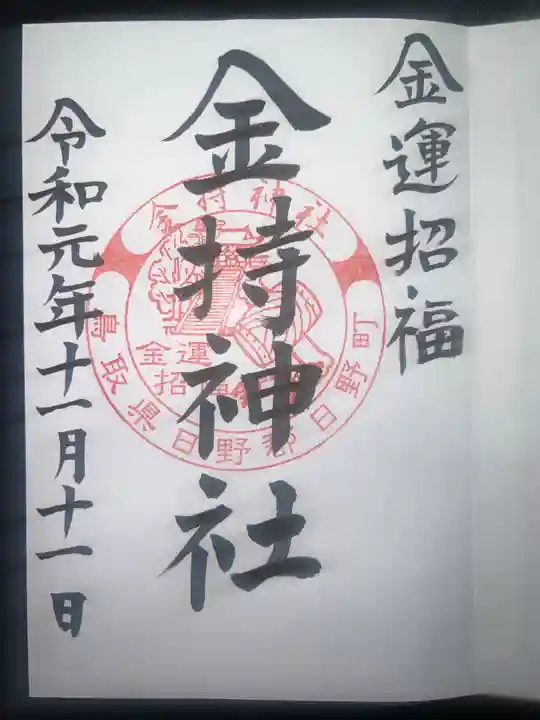 金運招福
金持神社
令和元年十一月十一日
金持神社
金運
招福
鳥取県日野郡日野町